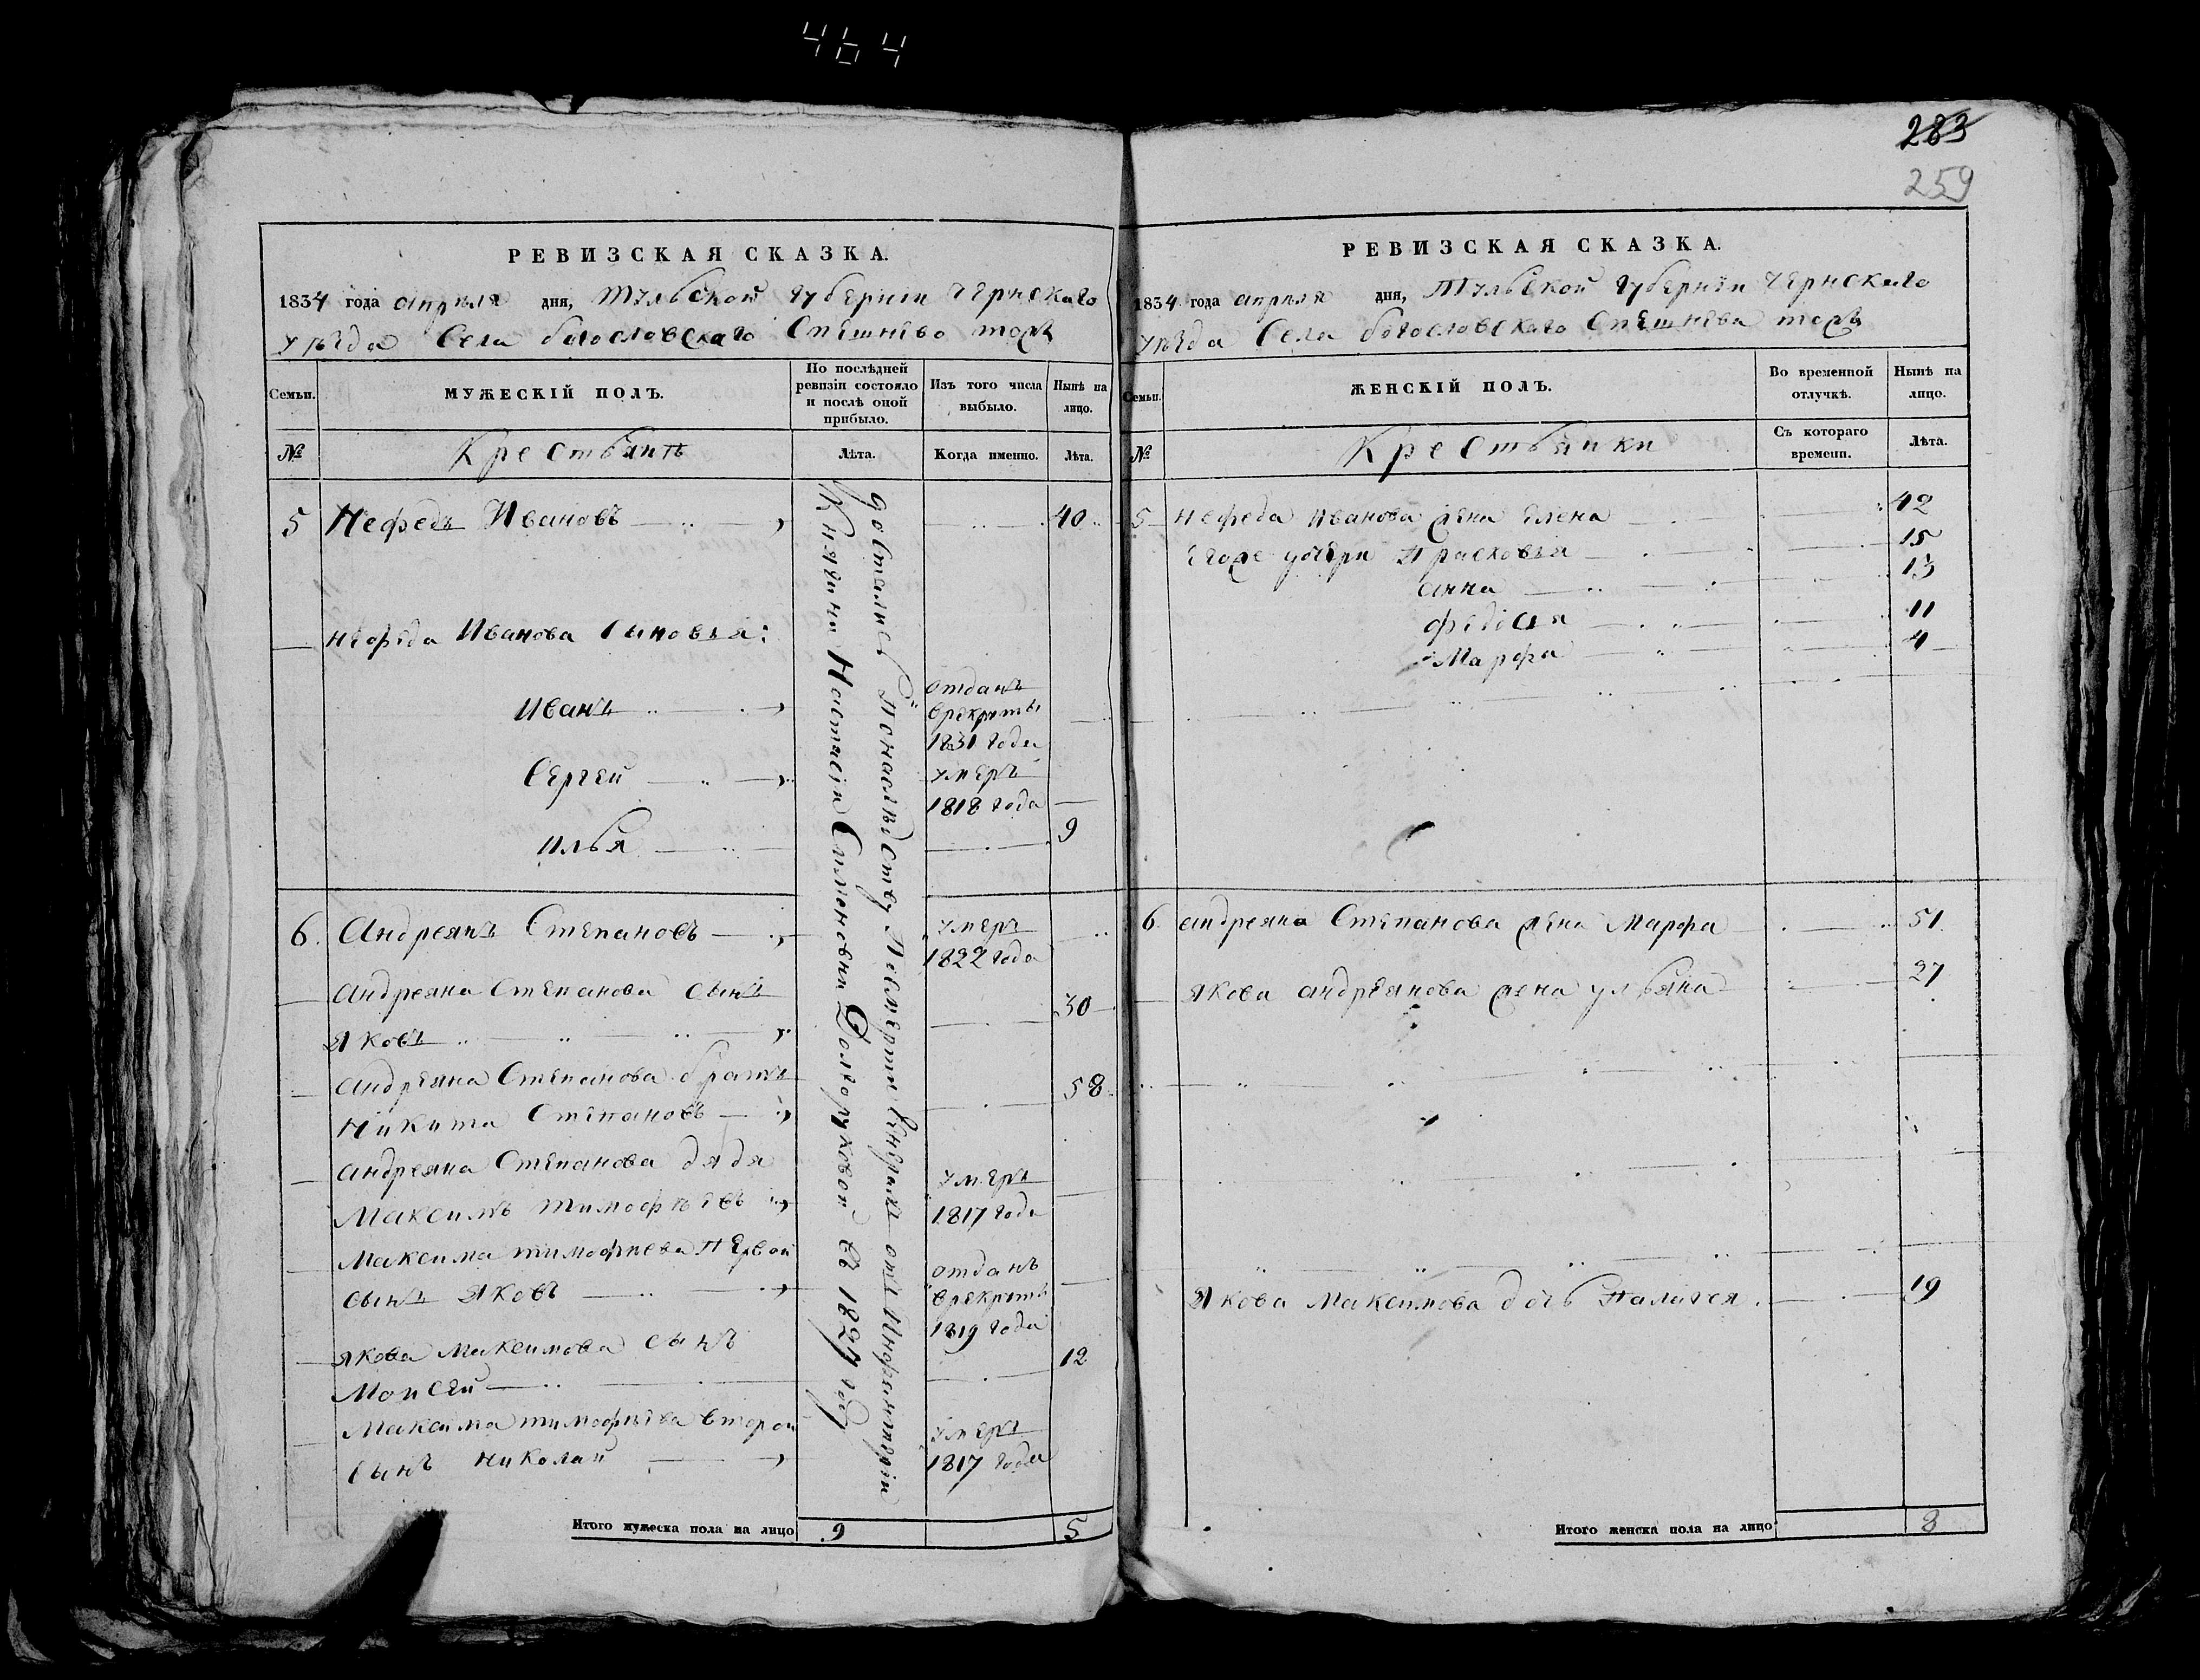 464
283
259
РЕВИЗСКАЯ СКАЗКА.
1834 года апреля дня, Тульской губерніи Чернскаго
уѣзда Села богословскаго Спешнево тожъ
Семьи.
МУЖЕСКІЙ ПОЛЪ.
По послѣдней ревизіи состояло и послѣ оной прибыло.
Изъ того числа выбыло.
Нынѣ на лицо.
№
Крестьянѣ
Лѣта.
Когда именно.
Лѣта.
достались Понаслѣдству Посмерти Генерала отъ Инфантеріи
Княгини Настасіи Симоновны Долгоруковой въ 1829 году
5 Нефедъ Ивановъ 40
Нефеда Иванова сыновья:
Иванъ отданъ
врекруты
1831 года
Сергей умеръ
1818 года
Илья 9
6. Андреянъ Степановъ умеръ
1822 года
Андреяна Степанова сынъ
Яковъ 30
Андреяна Степанова братъ
Никита Степановъ 58
Андреяна Степанова дядя
Максимъ Тимофѣевъ умеръ
1817 года
Максима тимофѣева Первой
сынъ Яковъ отданъ
врекруты
1819 года
Якова Максимова сынъ
Моисей 12
Максима тимофѣева второй
сынъ Николай умеръ
1817 года
Итого мужеска пола на лицо 9 5
РЕВИЗСКАЯ СКАЗКА.
1834 года апреля дня, Тульской губерніи Чернскаго
уѣзда Села богословскаго Спешнева тожъ
Семьи.
ЖЕНСКІЙ ПОЛЪ.
Во временной отлучкѣ.
Нынѣ на лицо.
№
Крестьянки
Съ котораго времени.
Лѣта.
5 Нефеда Иванова жена Елена 42
Егоже дочери Прасковья 15
Анна 13
федосья 11
Марфа 4
6 андреяна Степанова жена Марфа 51
Якова андреянова жена ульяна 27
Якова Максимова дочь Палагея 19
Итого женска пола на лицо 8